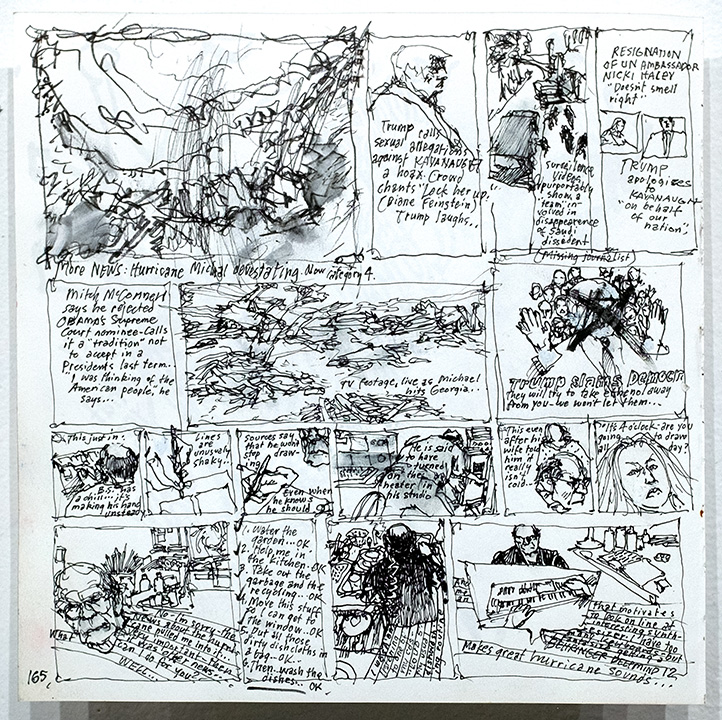 Trump calls
sexual allegations
against KAVANAUGH
a hoax. Crowd
chants "Lock her up.
(Diane Feinstein)
Trump laughs..
surveilance
video
purportably
show a
"team" in
volved in
disappearance
of Saudi
dissedent
(Missing journalist)
RESIGNATION
OF UN AMBASSADOR
NICKI HALEY
"Doesn't smell
right"
TRUMP
apologizes
to
KAVANAUGH
"on behalf
of our
nation".
More NEWS: Hurricane Michal devestating. Now category 4.
Mitch McConnell
says he rejected
OBAMA's Supreme
Court nominee-calls
it a "tradition" not
to accept in a
Presidents last term..
I was thinking of the
American people, he
says...
TV footage, live as Michael
hits Georgia...
TRUMP SLAMS DEMOCR
they will try to take away
from you-we won't let them...
This just in:
B.S. has
a chill... it's
making his hand
unstead
Lines
are
unusualy
shaky..
sources say
that he wont
stop draw-
ing
Even when
he knows
he should
He is said
to have
turned
on the
heater in
his studio
This even
after his
wife told
him it
really
isn't
cold..
It's 4 o'clock-are you
going to draw
all day?
What
No-I'm sorry-the
news about the hurri-
cane pulled me into draw-
ing Florida, and then
there was other news...
What can I do for you?
WELL..
1. Water the
garden...OK
2. Help me in
the kitchen. OK
3. Take out the
garbage and the
recycling.. OK
4. Move this stuff
so I can get to
the window..OK
5. Put all those
dirty dishcloths in
a bag..OK..
6. Then..wash the
dishes... OK
That motivates
to look on line at
BEHRINGER DEEPMIND 12
Makes great hurricane sounds...
165